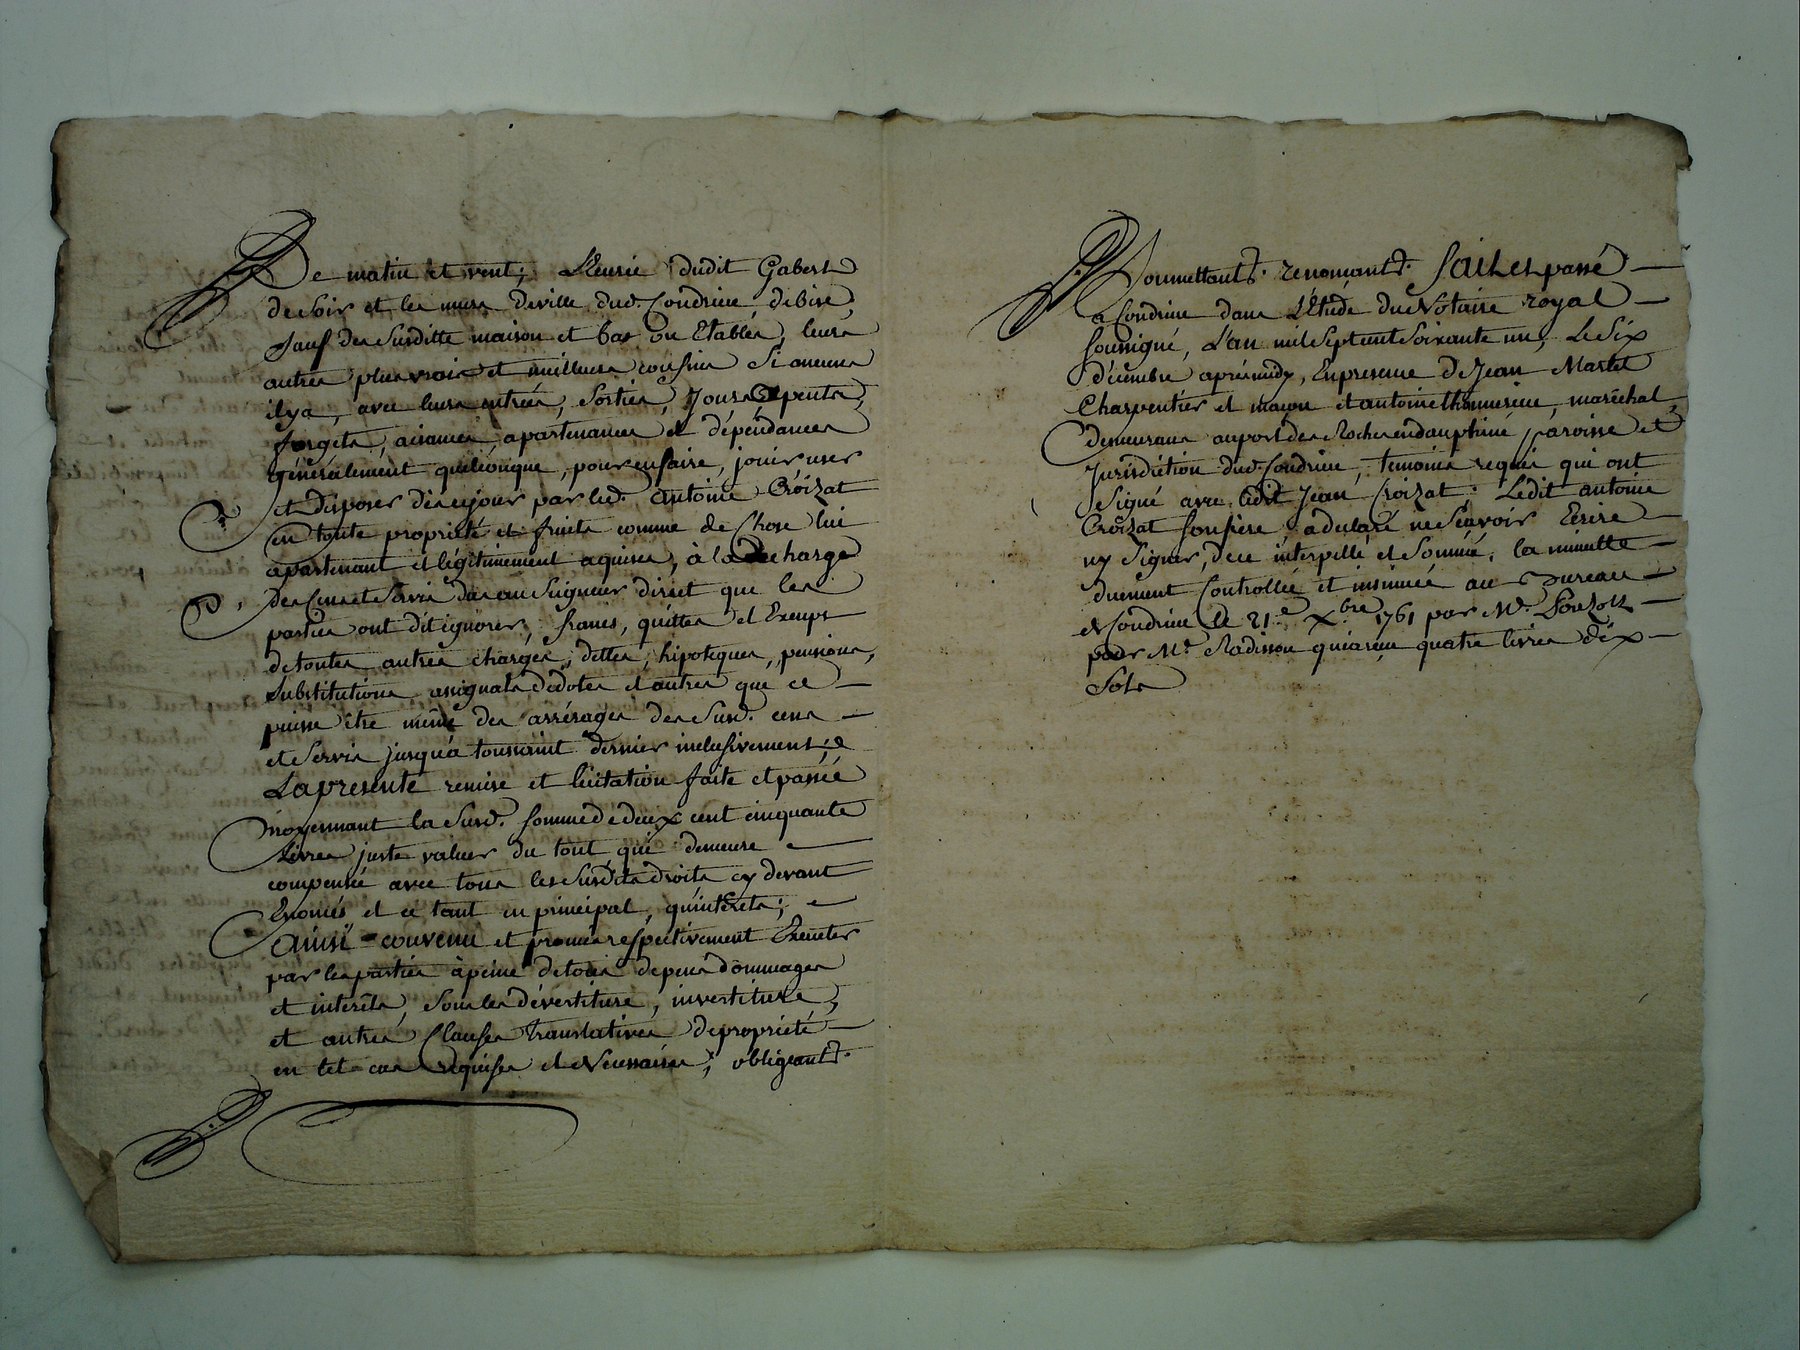 De matin et vent; L'Ecurie dudit Gabert
de soir et les murs deville dud. Condrieu debise,
sauf des Susditte maison et bas ou Etables, leurs
autres plus vrais et meilleurs confins Si aucuns
ilya, avec leurs entrées, Sorties, Jours pentes,
forgets, aisances, apartenances et dépendances
généralement quelconque, pour enfaire, jouir user
et disposer dèscejour par led. Antoine Croizat
en toute proprieté et fruits comme de Chose lui
apartenant et légitimement aquises, à la decharge
des Cens et Servis dus au Seigneur direct que les
parties ont dit ignorer, francs, quittes et Exempt
detoutes autres charges, dettes, hipoteques, pensions,
Substitutions assignats dedotes et autres que ce
puisse être même des arrérages des Susd. cens
et Servis jusqu'a toussaint dernier inclusivement,
Lapresente remise et licitation faite et passée
moyennant la Susd. sommedédeux cent cinquante
Livres juste valeur du tout, qui demeure
compensée avec tous lesSusdits droits cy devant
Enoncés et ce tant en principal, qu'interets;
Ainsi convenu et promis respectivement Executer
par les parties à peine detous depens dommages
et interêts, Sous les dévertiture, invertiture,
et autres Clauses Translatives depropriété
en tel cas requises et Necessaires; obligeant.
Soumettant. renonçant. fait et passé
a Condrieu dans L'Etude du Notaire royal
soussigné, L'an mil Sept cent Soixante un, Le Six
décembre aprésmidy, En presence De Jean Martel
Charpentier et maçon et antoine maréchal,
demeurans auport des Roches endauphiné paroisse et
Jurisdiction dud. Condrieu, temoins requis qui ont
Signé avec ledit Jean Croizat. Ledit antoine
Croizat sonfrère, a declaré ne Sçavoir Ecrire
ny Signer, dece interpellé et Sommé, la minutte
duement Controllée et insinuée au Bureau
de Condrieu le 21.e Xbre 1761 par Mr.
pour Mr. Radisson quiareçu quatre livres dix
Sols